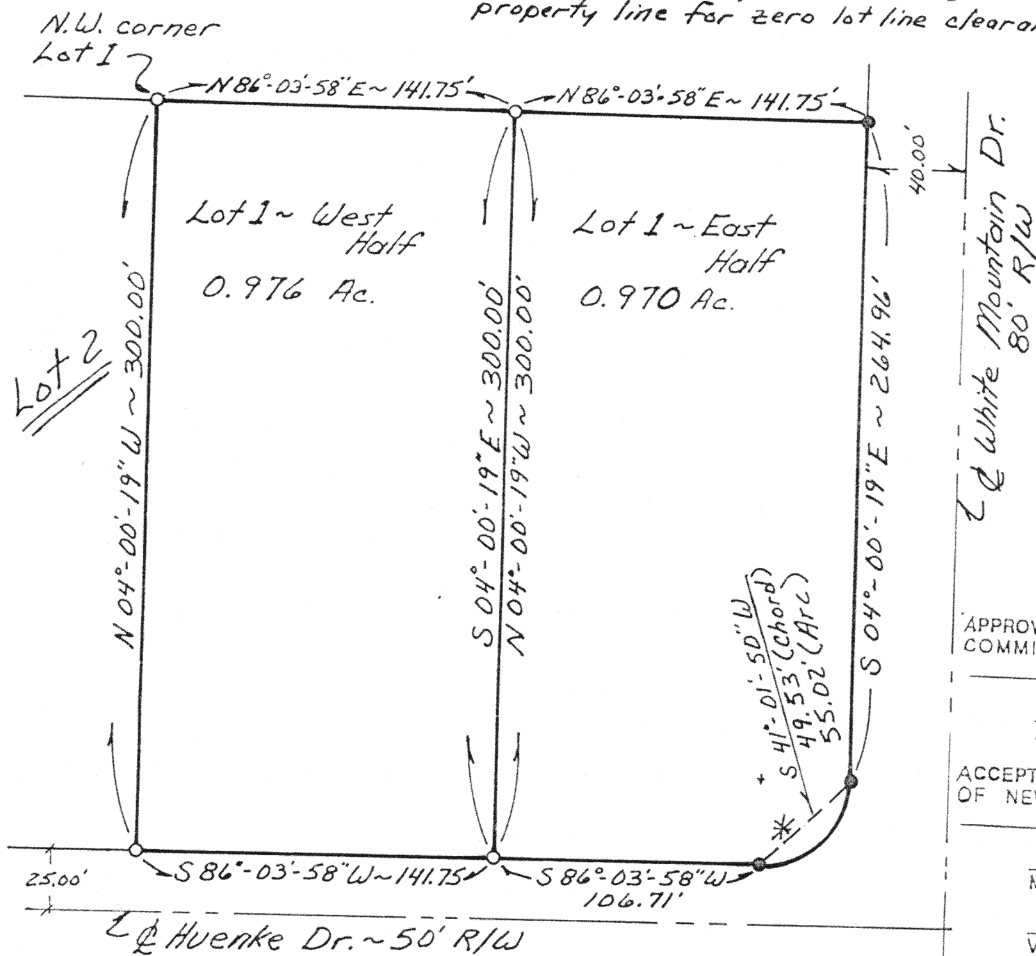 property line for zero lot line
N.W. corner
Lot 1
N 86°-03'-58" E ~ 141.75'
N 86°-03'-58" E ~ 141.75'
40.00'
℄ White Mountain Dr.
80' R/W
Lot 1 ~ West
Half
0.976 Ac.
Lot 1 ~ East
Half
0.970 Ac.
Lot 2
N 04°-00'-19" W ~ 300.00'
S 04°-00'-19" E ~ 300.00'
N 04°-00'-19" W ~ 300.00'
S 04°-00'-19" E ~ 264.96'
S 41°-01'-50" W
49.53' (Chord)
55.02' (Arc)
*
APPROV
COMMI
ACCEPT
OF NE
25.00'
S 86°-03'-58" W ~ 141.75'
S 86°-03'-58" W
106.71'
℄ Huenke Dr. ~ 50' R/W